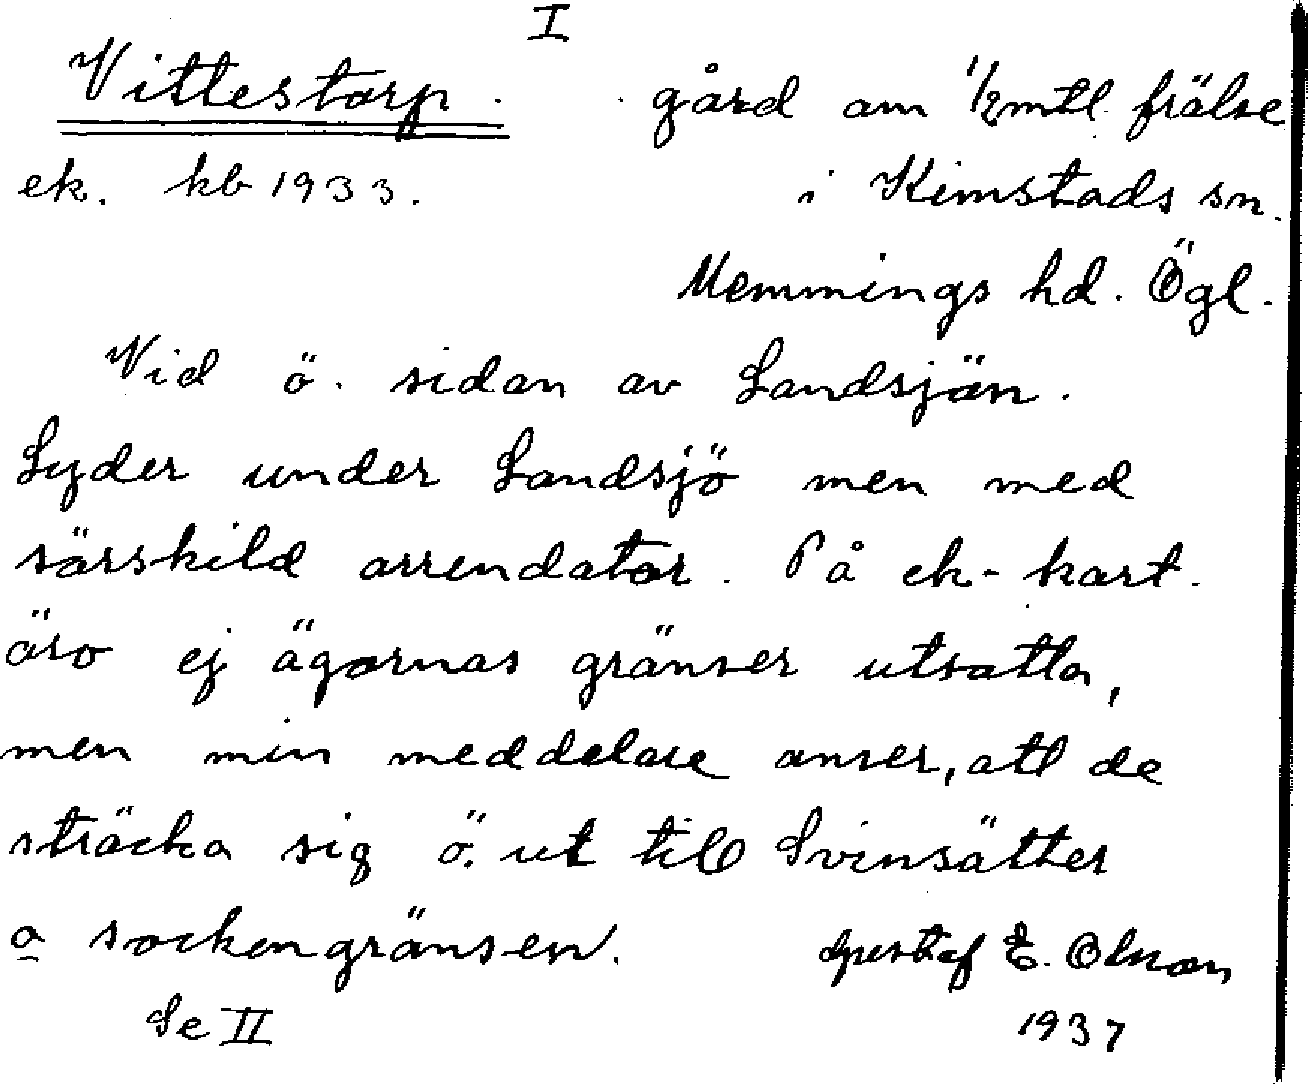 I
Vittestorp. gård om 1/2 mtl frälse
ek. kb 1933. i Kimstads sn.
Memmings hd. Ögl.
Vid ö. sidan av Landsjön.
Lyder under Landsjö men med
särskild arrendator. På ek-kart.
äro ej ägornas gränser utsatta,
men min meddelare anser, att de
sträcka sig ö. ut till Svinsätter
o sockengränsen. Gustaf E. Olson
Se II 1937